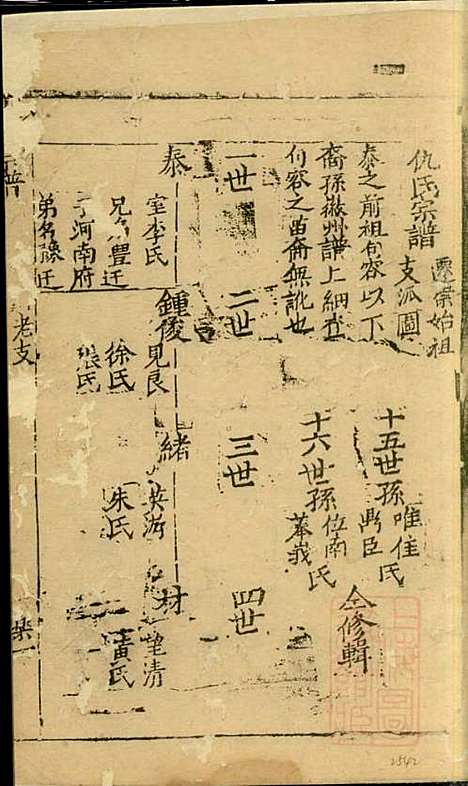 仇氏宗譜
遷崇始祖
支派圖
十五世孫
唯佳氏
彪臣
十六世孫
位南
峯峩氏
仝修輯
泰之前祖句容以下
裔孫徽州譜上細查
句容之苗裔無訛也
一世
二世
三世
四世
泰
鍾俊
緒
材
室李氏
見良
英
望清
兄名豐迁
徐氏
朱氏
黃氏
于河南府
張氏
弟名豫迁
宗譜
老支
2542